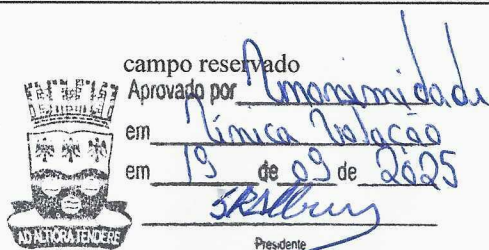 campo reservado
Aprovado por Unanimidade
em Única Votação
em 19 de 09 de 2025
Presidente
AD ALTIORA TENDERE